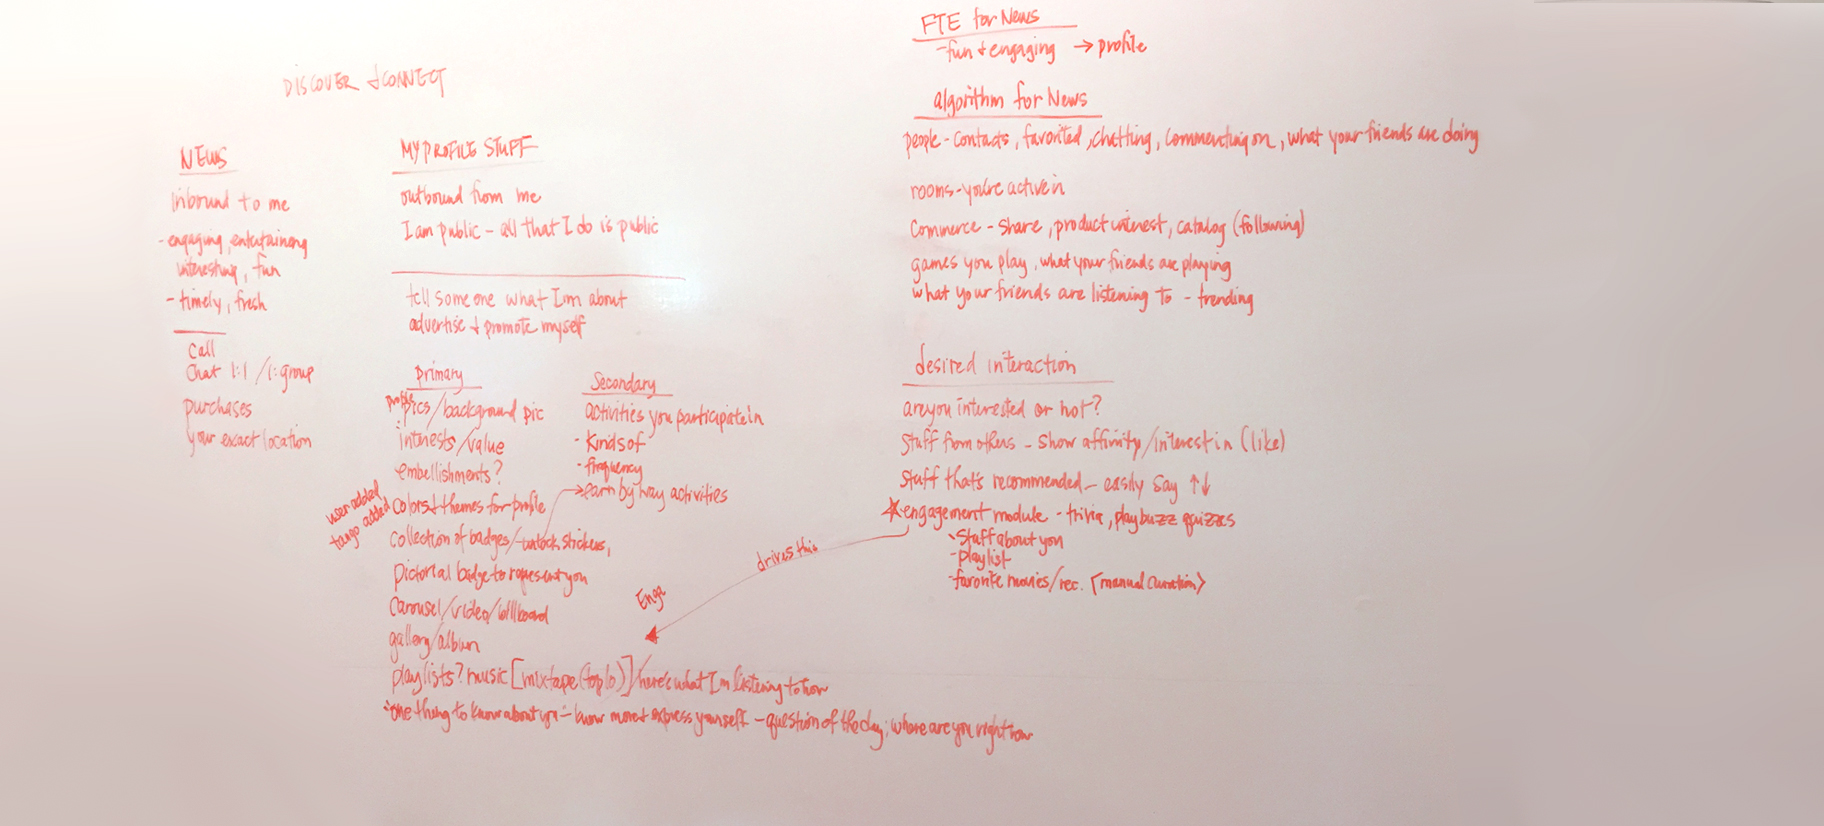 DISCOVER + CONNECT
NEWS
Inbound to me
- engaging, entertaining
interesting, fun
- timely, fresh
Call
Chat 1:1 / 1:group
purchases
your exact location
MY PROFILE STUFF
outbound from me
I am public - all that I do is public
tell someone what I'm about
advertise + promote myself
primary
profile
pics/background pic
interests/value
embellishments?
user added
tango added
colors + themes for profile
collection of badges/unlock stickers,
pictorial badge to represent you
Carousel/video/billboard
gallery/album
playlists? music [mixtape (top 10)]/here's what I'm listening to now
"one thing to know about you" - know more + express yourself - question of the day, where are you right now
Secondary
activities you participate in
- Kinds of
- frequency
→ earn by way activities
Enga
drives this
FTE for News
- fun + engaging → profile
algorithm for News
people - contacts, favorited, chatting, commenting on, what your friends are doing
rooms - you're active in
Commerce - share, product interest, catalog (following)
games you play, what your friends are playing
what your friends are listening to - trending
desired interaction
are you interested or not?
Stuff from others - show affinity/interest in (like)
Stuff that's recommended - easily say ↑↓
☆ engagement module - trivia, playbuzz quizzes
- Stuff about you
- playlist
- favorite movies/rec. [manual curation]